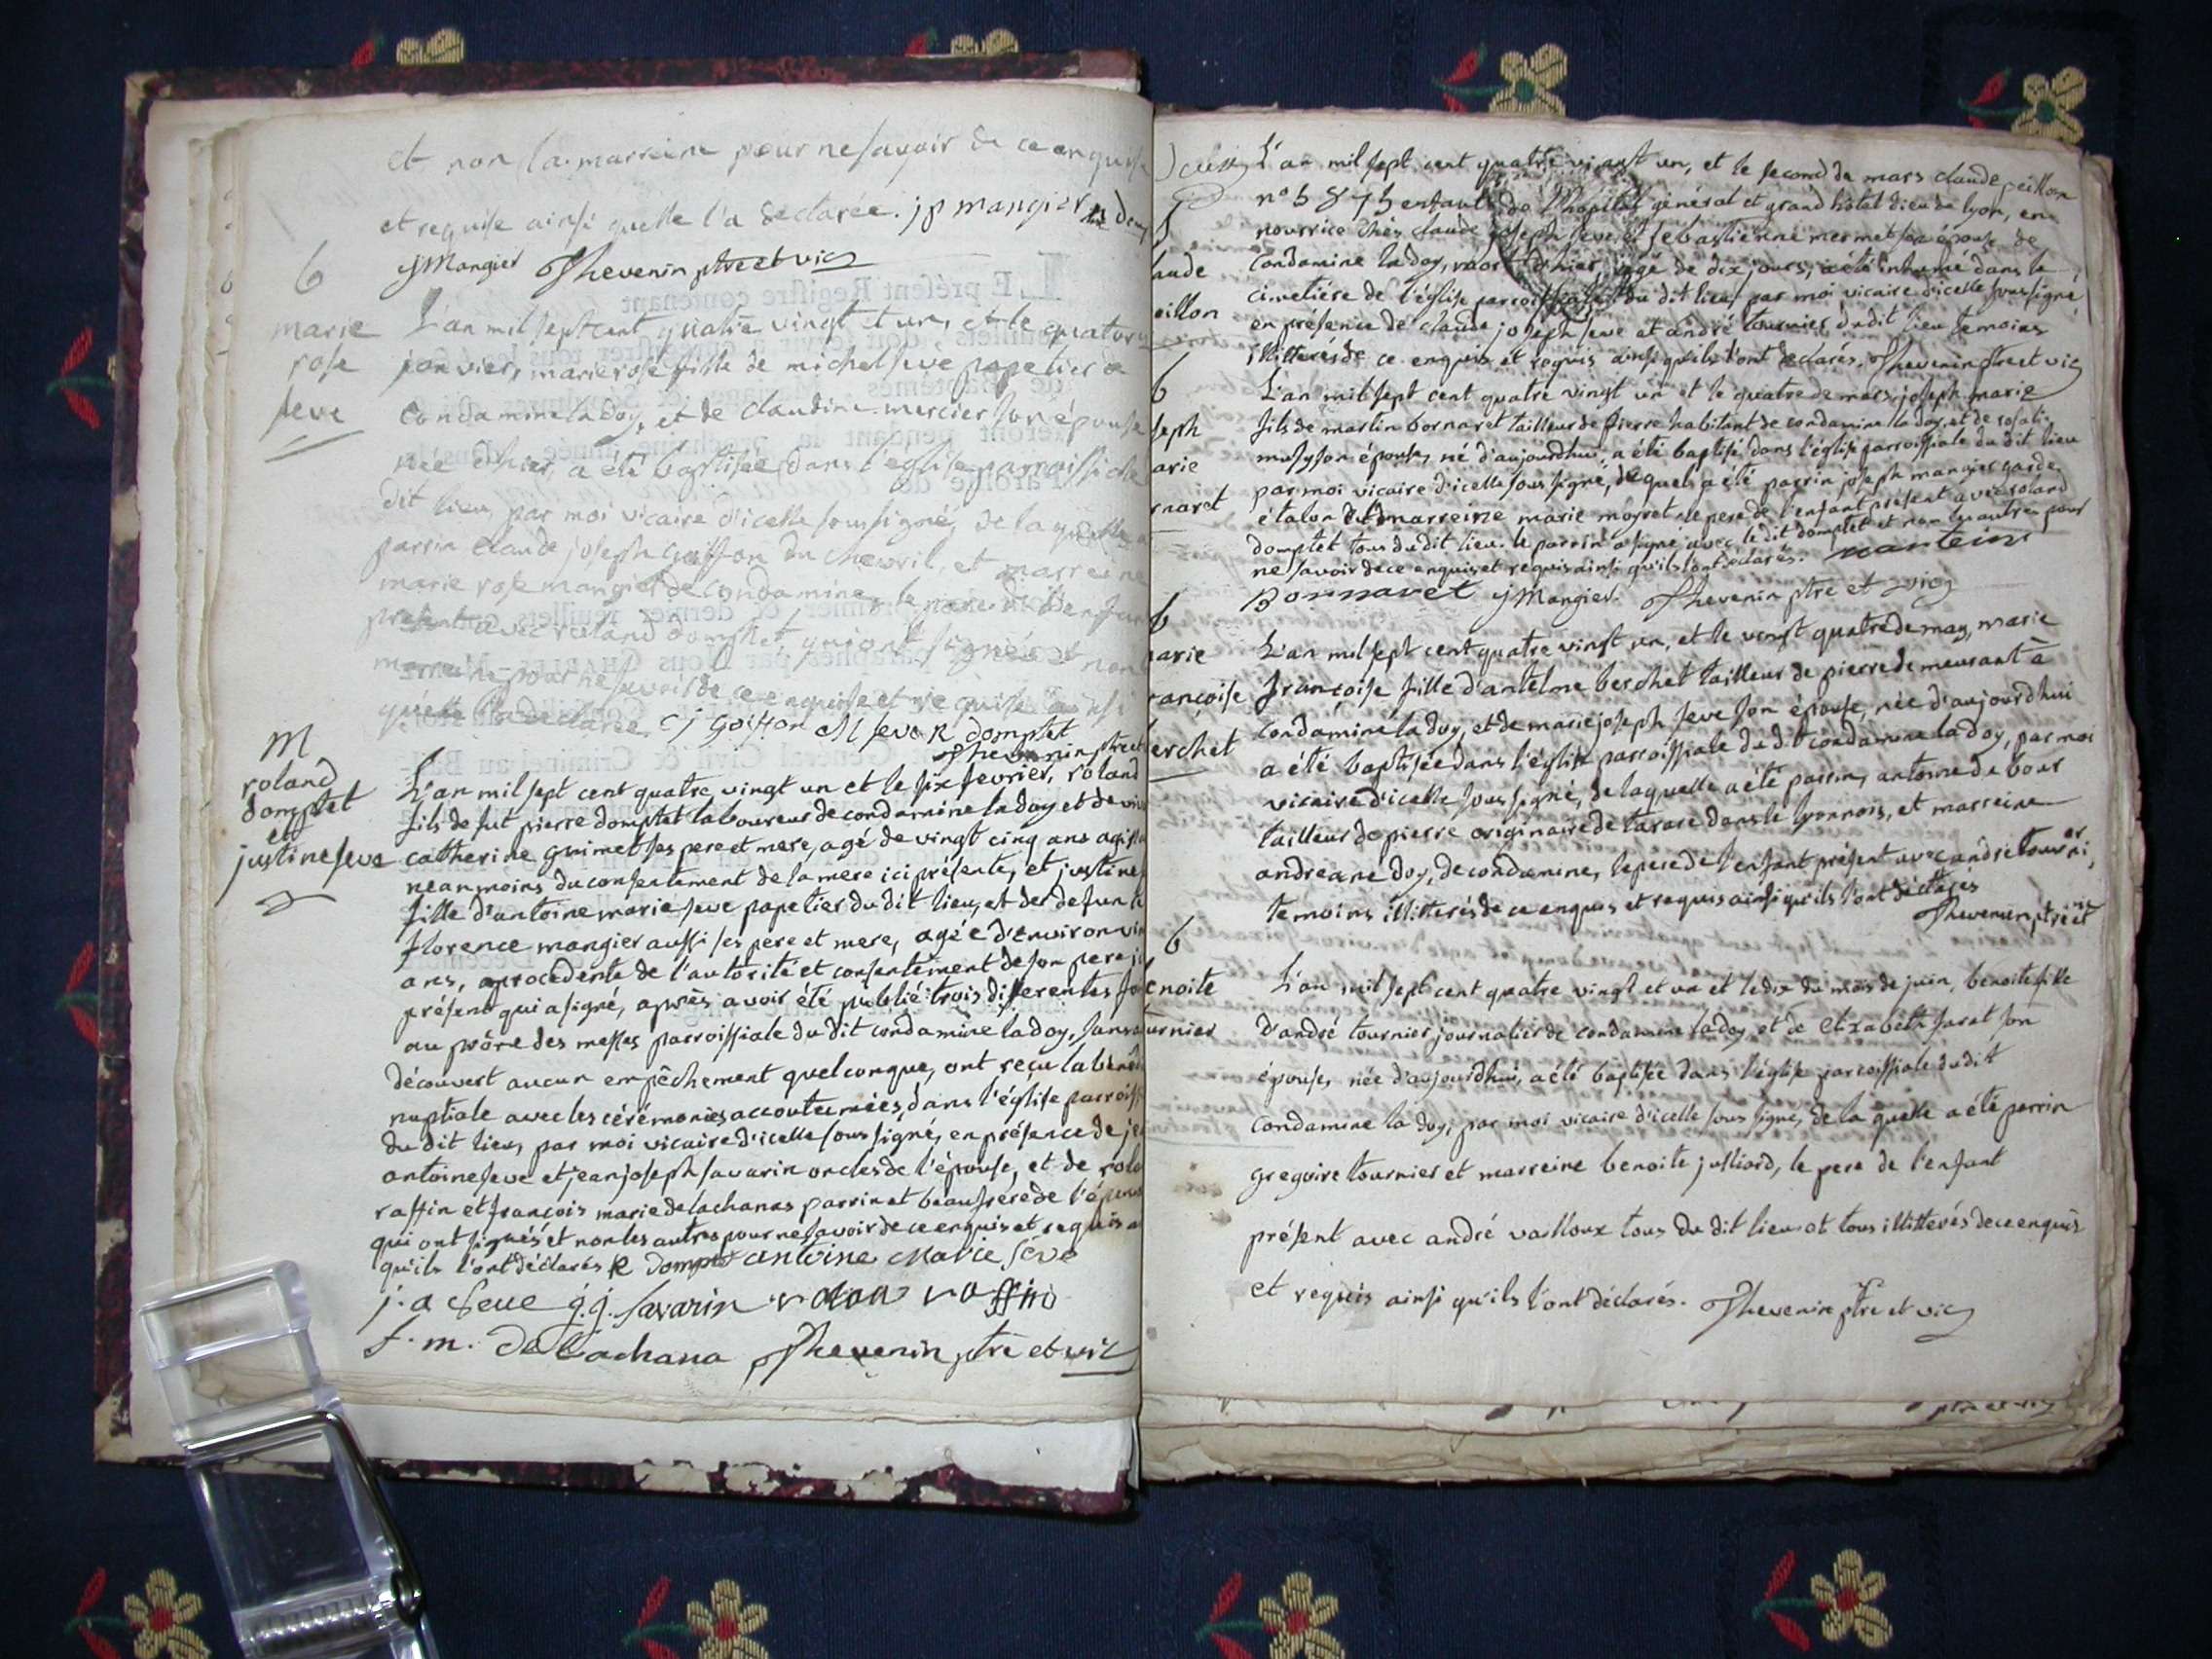 et non la marreine pour ne savoir de ce enquise
et requise ainsi quelle l'a declarée. jp mangier
jMangier Thevenin ptre et vic
6
marie
rose
seve
L'an mil sept cent quatre vingt et un, et le quatorze
janvier, marie rose fille de michel seve papetier a
Condamine la doy, et de claudine mercier son épouse
née d'hier, a été baptisée dans l'église parroissiale
dit lieu, par moi vicaire d'icelle soussigné, de la quelle a
parrin Claude joseph Goiffon du Chevril, et marreine
marie rose mangier de Condamine, le pere de l'enfant
présent avec roland domptet, qui ont signés et non la
marreine pour ne savoir de ce enquise et requise ainsi
quelle l'a declarée. Cj Goiffon M seve R domptet
Thevenin ptre et
M
roland
domptet
et
justine seve
L'an mil sept cent quatre vingt un et le six fevrier, roland
fils de fut pierre domptet laboureur de condamine la doy et de vivante
catherine guimet ses pere et mere, agé de vingt cinq ans agissant
neanmoins du consentement de la mere ici présente, et justine
fille d'antoine marie seve papetier du dit lieu, et de defunte
florence mangier aussi ses pere et mere, agée d'environ vin
ans, procedente de l'autorité et consentement de son pere ici
présent qui a signé, après avoir été publié trois differentes fois
au prône des messes parroissiale du dit condamine la doy, sans a
découvert aucun empêchement quelconque, ont reçu la béned
nuptiale avec les cérémonies accoutumées, dans l'église parroiss
du dit lieu, par moi vicaire d'icelle sous signé, en présence de je
antoine seve et jean joseph savarin oncles de l'épouse, et de rola
raffin et françois marie delachanas parrin et beaufrere de l'épous
qui ont signés et non les autres pour ne savoir de ce enquis et requis a
qu'ils l'ont déclarés R dompte antoine Marie Seve
j. a Seve j.j. Savarin rolan raffin
f. m. de Lachana Thevenin ptre et vic
S
laude
eillon
L'an mil sept cent quatre vingt un, et le second de mars claude peillon
n° 5875 enfant de l'hopital général et grand hôtel dieu de lyon, en
nourrice chés claude joseph seve et sebastienne mermet son épouse de
Condamine la doy, mort d'hier, agé de dix jours, a été inhumé dans le
cimetiére de l'église parroissiale du dit lieu, par moi vicaire d'icelle soussigné
en présence de claude joseph seve et andré tournier du dit lieu temoins
illitterés de ce enquis et requis ainsi qu'ils l'ont declarés. Thevenin ptre et vic
6
seph
arie
rnaret
L'an mil sept cent quatre vingt un et le quatre de mars, joseph marie
fils de martin bornaret tailleur de pierre habitant de condamine la doy, et de rosali
mussy son épouse, né d'aujourdhui, a été baptisé dans l'église parroissiale du dit lieu
par moi vicaire d'icelle sous signé, du quel a été parrin joseph mangier garde
étalon et marreine marie moyret, le pere de l'enfant présent avec roland
domptet tous du dit lieu. le parrin a signé avec le dit domptet et non les autres pour
ne savoir de ce enquis et requis ainsi qu'ils l'ont déclarés. martein
Bornaret jMangier. Thevenin ptre et vic
6
arie
rançoise
erchet
L'an mil sept cent quatre vingt un, et le vingt quatre de may, marie
françoise fille d'antelme berchet tailleur de pierre demeurant à
Condamine la doy, et de marie joseph seve son épouse, née d'aujourdhui
a été baptisée dans l'église parroissiale du dit condamine la doy, par moi
vicaire d'icelle sous signé, de laquelle a été parrin, antoine dubour
tailleur de pierre originaire de tarare dans le lyonnois, et marreine
andreane doy, de condamine, le pere de l'enfant présent avec andre tournier,
temoins illitterés de ce enquis et requis ainsi qu'ils l'ont déclarés
Thevenin ptre et vic
6
enoite
urnier
L'an mil sept cent quatre vingt et un et le dix du mois de juin, benoite fille
d'andré tournier journalier de condamine la doy, et de Elizabeth faret son
épouse, née d'aujourdhui, a été baptisée dans l'église parroissiale du dit
Condamine la doy, par moi vicaire d'icelle sous signé, de la quelle a été parrin
gregoire tournier et marreine benoite julliard, le pere de l'enfant
présent avec andré vailloux tous du dit lieu et tous illitterés de ce enquis
et requis ainsi qu'ils l'ont déclarés. Thevenin ptre et vic
ptre et vic